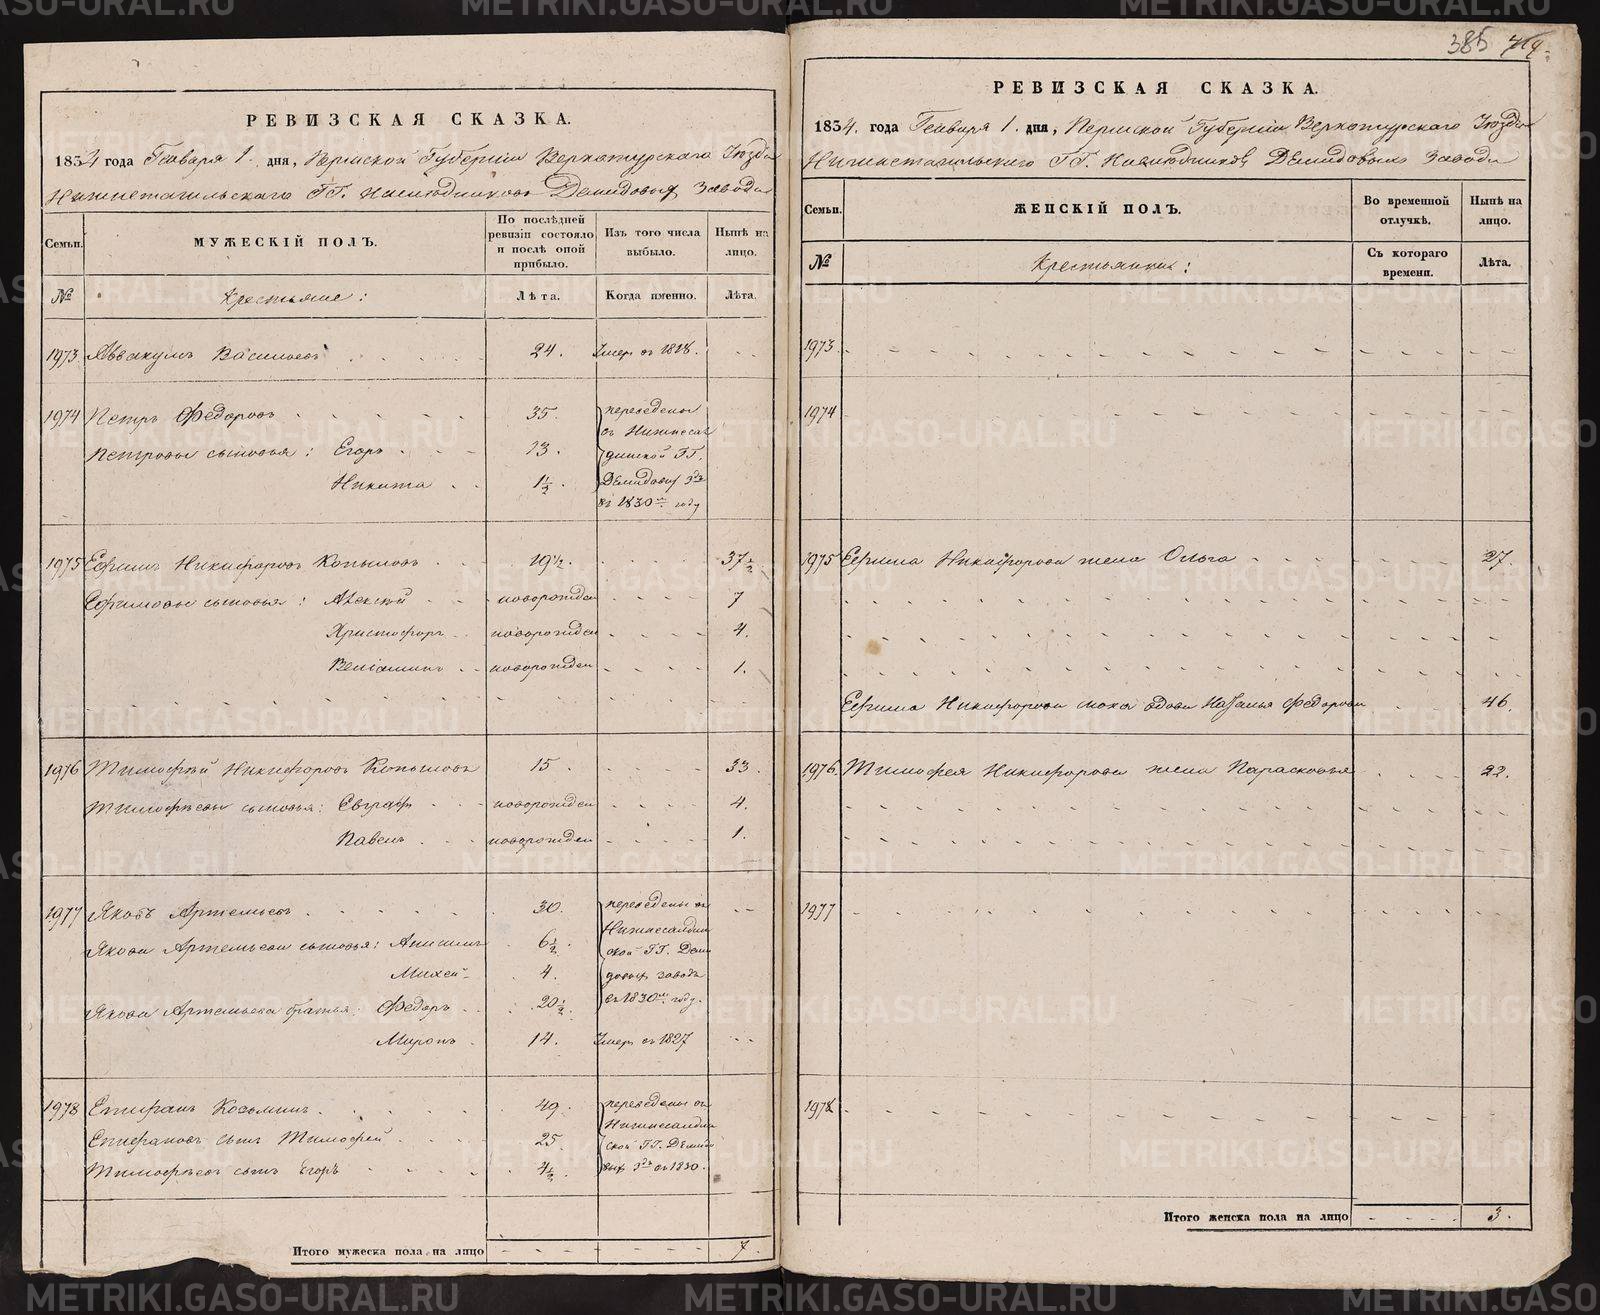 РЕВИЗСКАЯ СКАЗКА.
1834 года Генваря 1. дня, Пермской Губернии Верхотурского Уезда
Нижнетагильского ГГ. Наследников Демидовых завода
Семьи.
МУЖЕСКІЙ ПОЛЪ.
По послѣдней ревизіи состояло и послѣ оной прибыло.
Изъ того числа выбыло.
Нынѣ на лицо.
№
Крестьяне:
Лѣта.
Когда именно.
Лѣта.
1973 Аввакумъ Васильевъ 24. Умеръ въ 1818.
1974 Петръ Федоровъ 35. переведены
въ Нижнесал
Петровы сыновья: Егоръ 13. динской ГГ.
Никита 1½. Демидовых
въ 1830м году
1975 Ефимъ Никифоровъ Копыловъ 19½. 37½
Ефимовы сыновья: Алексѣй новорожден 7
Христофоръ новорожден 4.
Веніаминъ новорожден 1.
1976 Тимофѣй Никифоровъ Копыловъ 15. 33.
Тимофѣевы сыновья: Евграфъ новорожден 4.
Павелъ новорожден 1.
1977 Яковъ Артемьевъ 30. переведены въ
Нижнесалдин
Якова Артемьева сыновья: Анисимъ 6½. ской ГГ. Деми
Михей 4. довых заводъ
Якова Артемьева братья: Федоръ 20½. въ 1830м году.
Миронъ 14. Умеръ въ 1827
1978 Епифанъ Козьминъ 49. переведены въ
Нижнесалдин
Епифановъ сынъ Тимофей 25 ской ГГ. Демидо
Тимофѣевъ сынъ Егоръ 4½. въ 1830.
Итого мужеска пола на лицо 7.
385
РЕВИЗСКАЯ СКАЗКА.
1834. года Генваря 1. дня, Пермской Губерніи Верхотурскаго Уезда
Нижнетагильскаго ГГ. Наследников Демидовыхъ завода
Семьи.
ЖЕНСКІЙ ПОЛЪ.
Во временной отлучкѣ.
Нынѣ на лицо.
№
Крестьянки:
Съ котораго времени.
Лѣта.
1973
1974
1975 Ефима Никифорова жена Ольга 27.
Ефима Никифорова вдова Наталья Федорова 46.
1976. Тимофея Никифорова жена Парасковья 22.
1977
1978
Итого женска пола на лицо 3.
METRIKI.GASO-URAL.RU